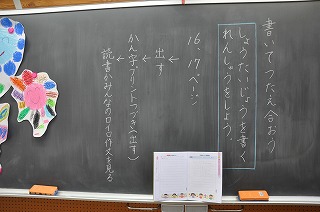 書いてつたえ合おう
しょうたいじょうを書く
れんしゅうをしよう。
16、17ページ
↓
出す
↓
かん字プリントつづき(出す)
↓
読書かみんなのロイロ作文を見る